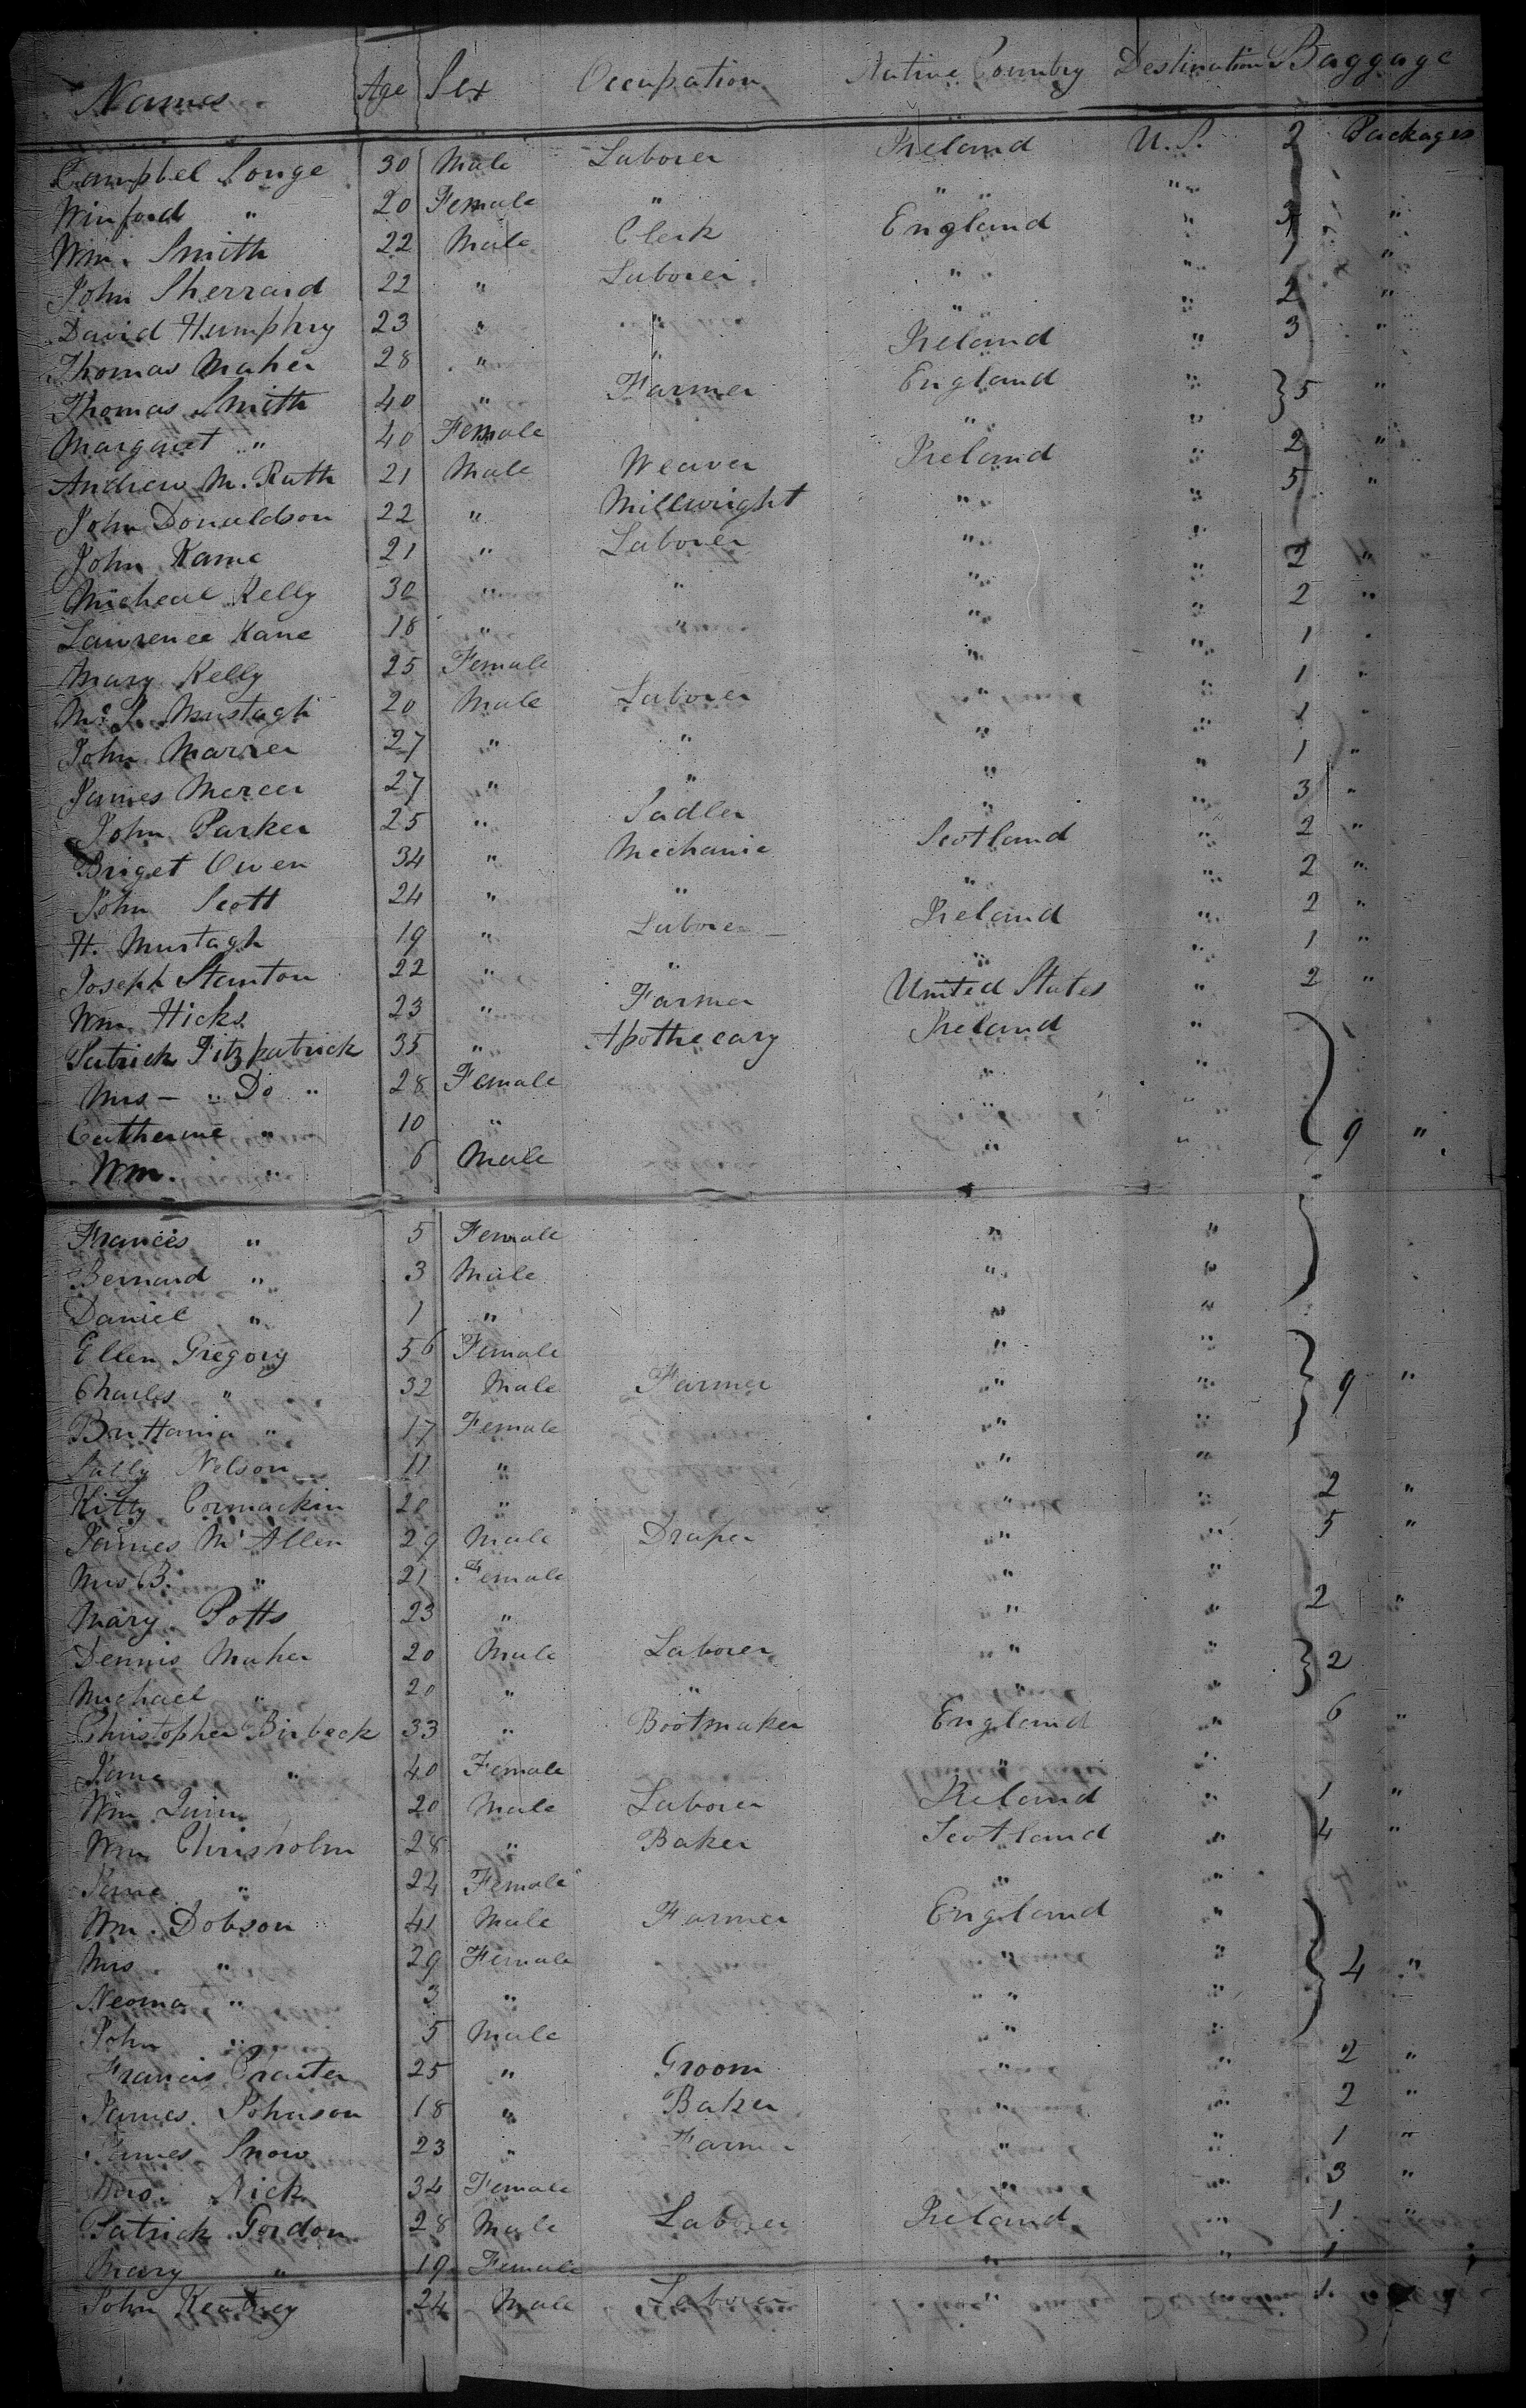 Names Age Sex Occupation Native Country Destination Baggage
Campbel Longe 30 Male Laborer Ireland U.S. 2 Packages
Winford " 20 Female " " " "
Wm. Smith 22 Male Clerk England " "
John Sherrard 22 " Laborer " " 1 "
David Humphry 23 " " " " 2 "
Thomas Maher 28 " " Ireland " 3 "
Thomas Smith 40 " Farmer England " 5 "
Margaret " 40 Female " "
Andrew M. Ruth 21 Male Weaver Ireland " 2 "
John Donaldson 22 " Millwright " " 5 "
John Kane 21 " Laborer " "
Micheal Kelly 30 " " " " 2 "
Lawrence Kane 18 " " " " 2 "
Mary Kelly 25 Female " " 1 "
Murtagh 20 Male Laborer " " 1 "
John Marrer 27 " " " " 1 "
James Mercer 27 " " " " 1 "
John Parker 25 " Sadler " " 3 "
Briget Owen 34 " Mechanic Scotland " 2 "
John Scott 24 " " " " 2 "
H. Murtagh 19 " Laborer Ireland " 2 "
Joseph Stanton 22 " " " " 1 "
Wm Hicks 23 " Farmer United States " 2 "
Patrick Fitzpatrick 35 " Apothecary Ireland "
Mrs — " Do " 28 Female " "
Catherine " 10 " " " 9 "
Wm. " 6 Male " "
Francis " 5 Female " "
Bernard " 3 Male " "
Daniel " 1 " " "
Ellen Gregory 56 Female " "
Charles " 32 Male Farmer " " 9 "
Brittania " 17 Female " "
Sally Nelson 11 " " "
Kitty Cormackin 20 " " " 2 "
James McAllen 29 Male Draper " " 5 "
Mrs B. " 21 Female " "
Mary Potts 23 " " " 2 "
Dennis Maher 20 Male Laborer " " 2
Michael " 20 " " " "
Christopher Birbeck 33 " Bootmaker England " 6 "
Jane " 40 Female " "
Wm Quin 20 Male Laborer Ireland " 1 "
Wm Chrisholm 28 " Baker Scotland " 4 "
Jane " 24 Female " "
Wm. Dobson 41 Male Farmer England "
Mrs " 29 Female " " 4 "
Neoma " 3 " " "
John " 5 Male " "
Francis 25 " Groom " " 2 "
James Johnson 18 " Baker " " 2 "
James Snow 23 " Farmer " " 1 "
Mrs. Nick 34 Female " " 3 "
Patrick Gordon 28 Male Laborer Ireland " 1 "
Mary " 19 Female " " 1
John Keatney 24 Male Laborer "